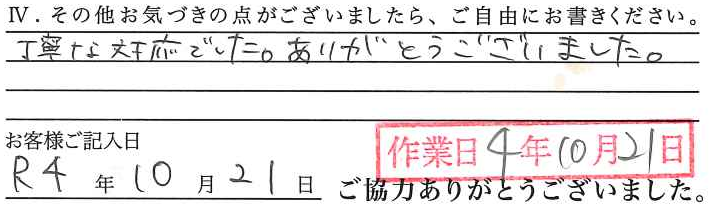 Ⅳ．その他お気づきの点がございましたら、ご自由にお書きください。
丁寧な対応でした。ありがとうございました。
お客様ご記入日
作業日4年10月21日
R4年10月21日
ご協力ありがとうございました。